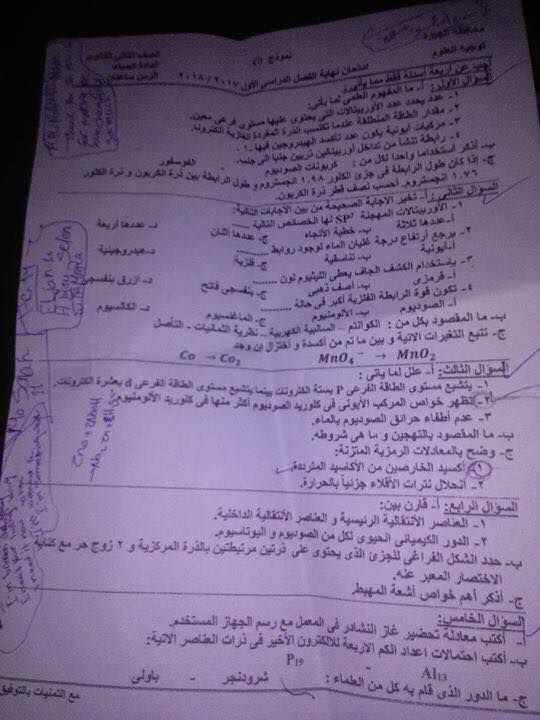 محافظة
توجيه العلوم
نموذج (أ)
الصف الثانى الثانوى
المادة كيمياء
الزمن ساعتان
امتحان نهاية الفصل الدراسى الأول ٢٠١٧ / ٢٠١٨
أجب عن أربعة أسئلة فقط مما يأتى
السؤال الأول: أ- ما المفهوم العلمى لما يأتى:
١- عدد يحدد عدد الأوربيتالات التى يحتوى عليها مستوى فرعى معين.
٢- مقدار الطاقة المنطلقة عندما تكتسب الذرة المفردة الغازية إلكترونا.
٣- مركبات أيونية يكون عدد تأكسد الهيدروجين فيها -١.
٤- رابطة تنشأ من تداخل أوربيتالين ذريين جنبا الى جنب.
ب- أذكر أستخداما واحدا لكل من : كربونات الصوديوم - الفوسفور
ج- إذا كان طول الرابطة فى جزئ الكلور ١.٩٨ انجستروم و طول الرابطة بين ذرة الكربون و ذرة الكلور
١.٧٦ انجستروم. أحسب نصف قطر ذرة الكربون.
السؤال الثانى: أ- تخير الاجابة الصحيحة من بين الاجابات التالية:
١- الأوربيتالات المهجنة SP³ لها الخصائص التالية .....
أ- عددها ثلاثة ب- خطية الأتجاه ج- عددها أثنان د- عددها أربعة
٢- يرجع أرتفاع درجة غليان الماء لوجود روابط .....
أ- أيونية ب- تناسقية ج- فلزية د- هيدروجينية
٣- بأستخدام الكشف الجاف يعطى الليثيوم لون .....
أ- قرمزى ب- أصف ذهبى ج- بنفسجى فاتح د- أزرق بنفسجى
٤- تكون قوة الرابطة الفلزية أكبر فى حالة .....
أ- الصوديوم ب- الألومنيوم ج- الماغنسيوم د- الكالسيوم
ب- ما المقصود بكل من : الكوانتم - السالبية الكهربية - نظرية الثمانيات - التأصل
ج- تتبع التغيرات الاتية و بين ما تم من أكسدة و أختزال إن وجد
MnO4⁻ → MnO2 Co → Co2
السؤال الثالث: أ- علل لما يأتى :
١- يتشبع مستوى الطاقة الفرعى P بستة الكترونات بينما يتشبع مستوى الطاقة الفرعى d بعشرة الكترونات.
٢- تظهر خواص المركب الأيونى فى كلوريد الصوديوم أكثر منها فى كلوريد الألومنيوم.
٣- عدم أطفاء حرائق الصوديوم بالماء.
ب- ما المقصود بالتهجين و ما هى شروطه.
ج- وضح بالمعادلات الرمزية المتزنة:
١- أكسيد الخارصين من الأكاسيد المترددة.
٢- أنحلال نترات الأقلاء جزئياً بالحرارة.
السؤال الرابع: أ- قارن بين:
١- العناصر الأنتقالية الرئيسية و العناصر الأنتقالية الداخلية.
٢- الدور الكيميائى الحيوى لكل من الصوديوم و البوتاسيوم.
ب- حدد الشكل الفراغى للجزئ الذى يحتوى على ذرتين مرتبطتين بالذرة المركزية و ٢ زوج حر مع كتابة
الاختصار المعبر عنه.
ج- أذكر أهم خواص أشعة المهبط.
السؤال الخامس:
أ- أكتب معادلة تحضير غاز النشادر فى المعمل مع رسم الجهاز المستخدم.
ب- أكتب احتمالات اعداد الكم الاربعة للالكترون الأخير فى ذرات العناصر الاتية:
P19 - Al13
ج- ما الدور الذى قام به كل من العلماء : شرودنجر - باولى
مع التمنيات بالتوفيق